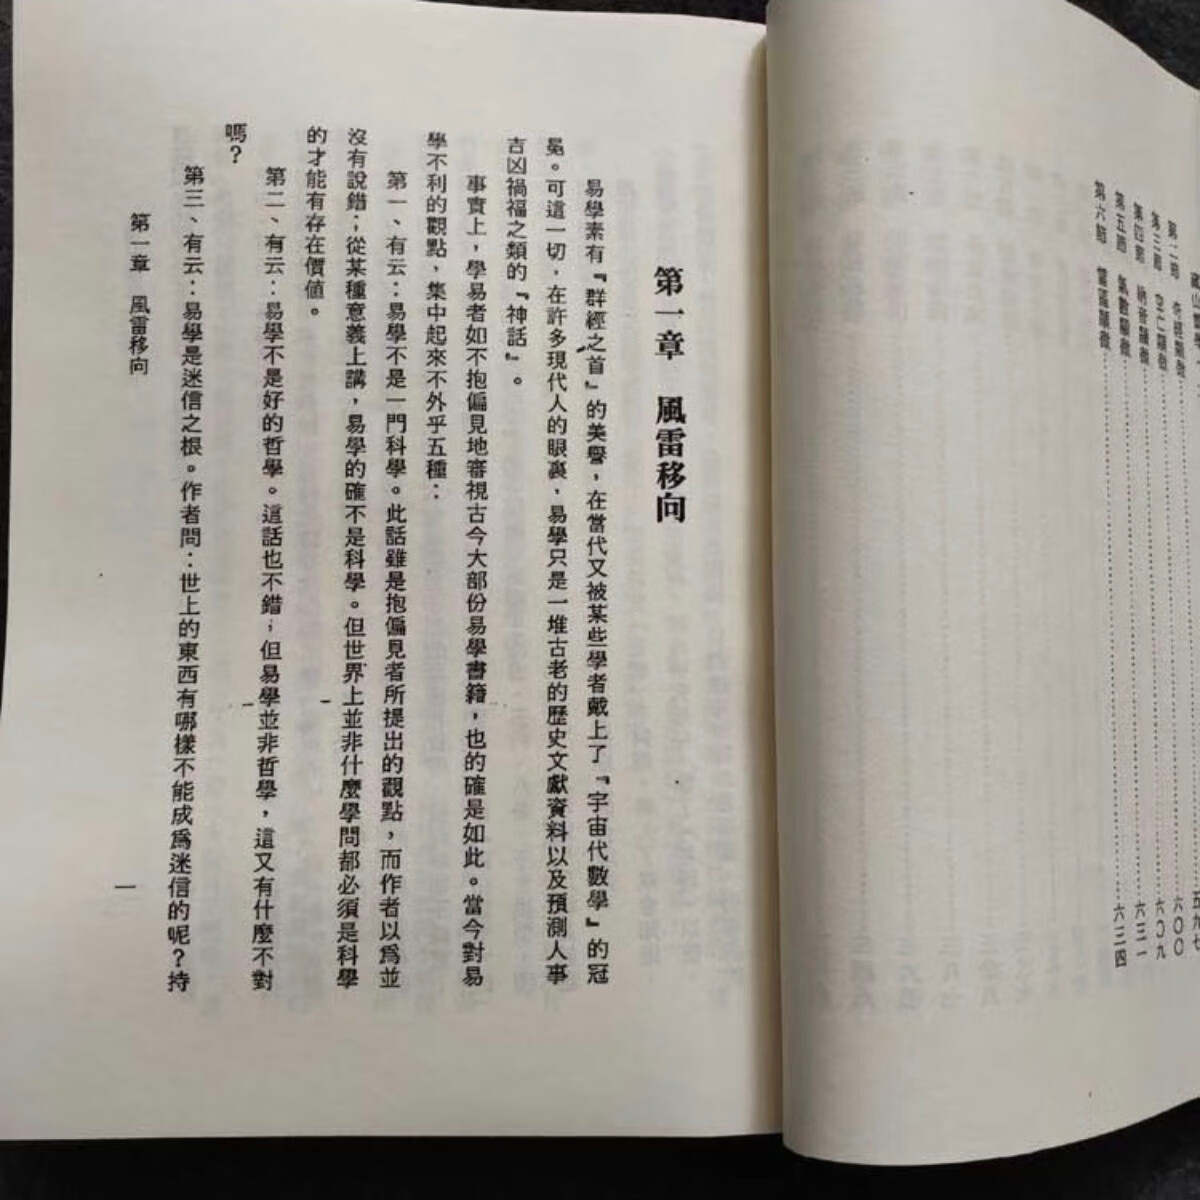 第二節
第三節 空亡顯微
第四節 納音顯微
第五節 氣數顯微
第六節
六〇〇
六〇九
六二四
第一章 風雷移向
易學素有『群經之首』的美譽，在當代又被某些學者戴上了『宇宙代數學』的冠
冕。可這一切，在許多現代人的眼裏，易學只是一堆古老的歷史文獻資料以及預測人事
吉凶禍福之類的『神話』。
事實上，學易者如不抱偏見地審視古今大部份易學書籍，也的確是如此。當今對易
學不利的觀點，集中起來不外乎五種：
第一、有云：易學不是一門科學。此話雖是抱偏見者所提出的觀點，而作者以爲並
沒有說錯；從某種意義上講，易學的確不是科學。但世界上並非什麼學問都必須是科學
的才能有存在價値。
第二、有云：易學不是好的哲學。這話也不錯；但易學並非哲學，這又有什麼不對
嗎？
第三、有云：易學是迷信之根。作者問：世上的東西有哪樣不能成爲迷信的呢？持
第一章 風雷移向
一